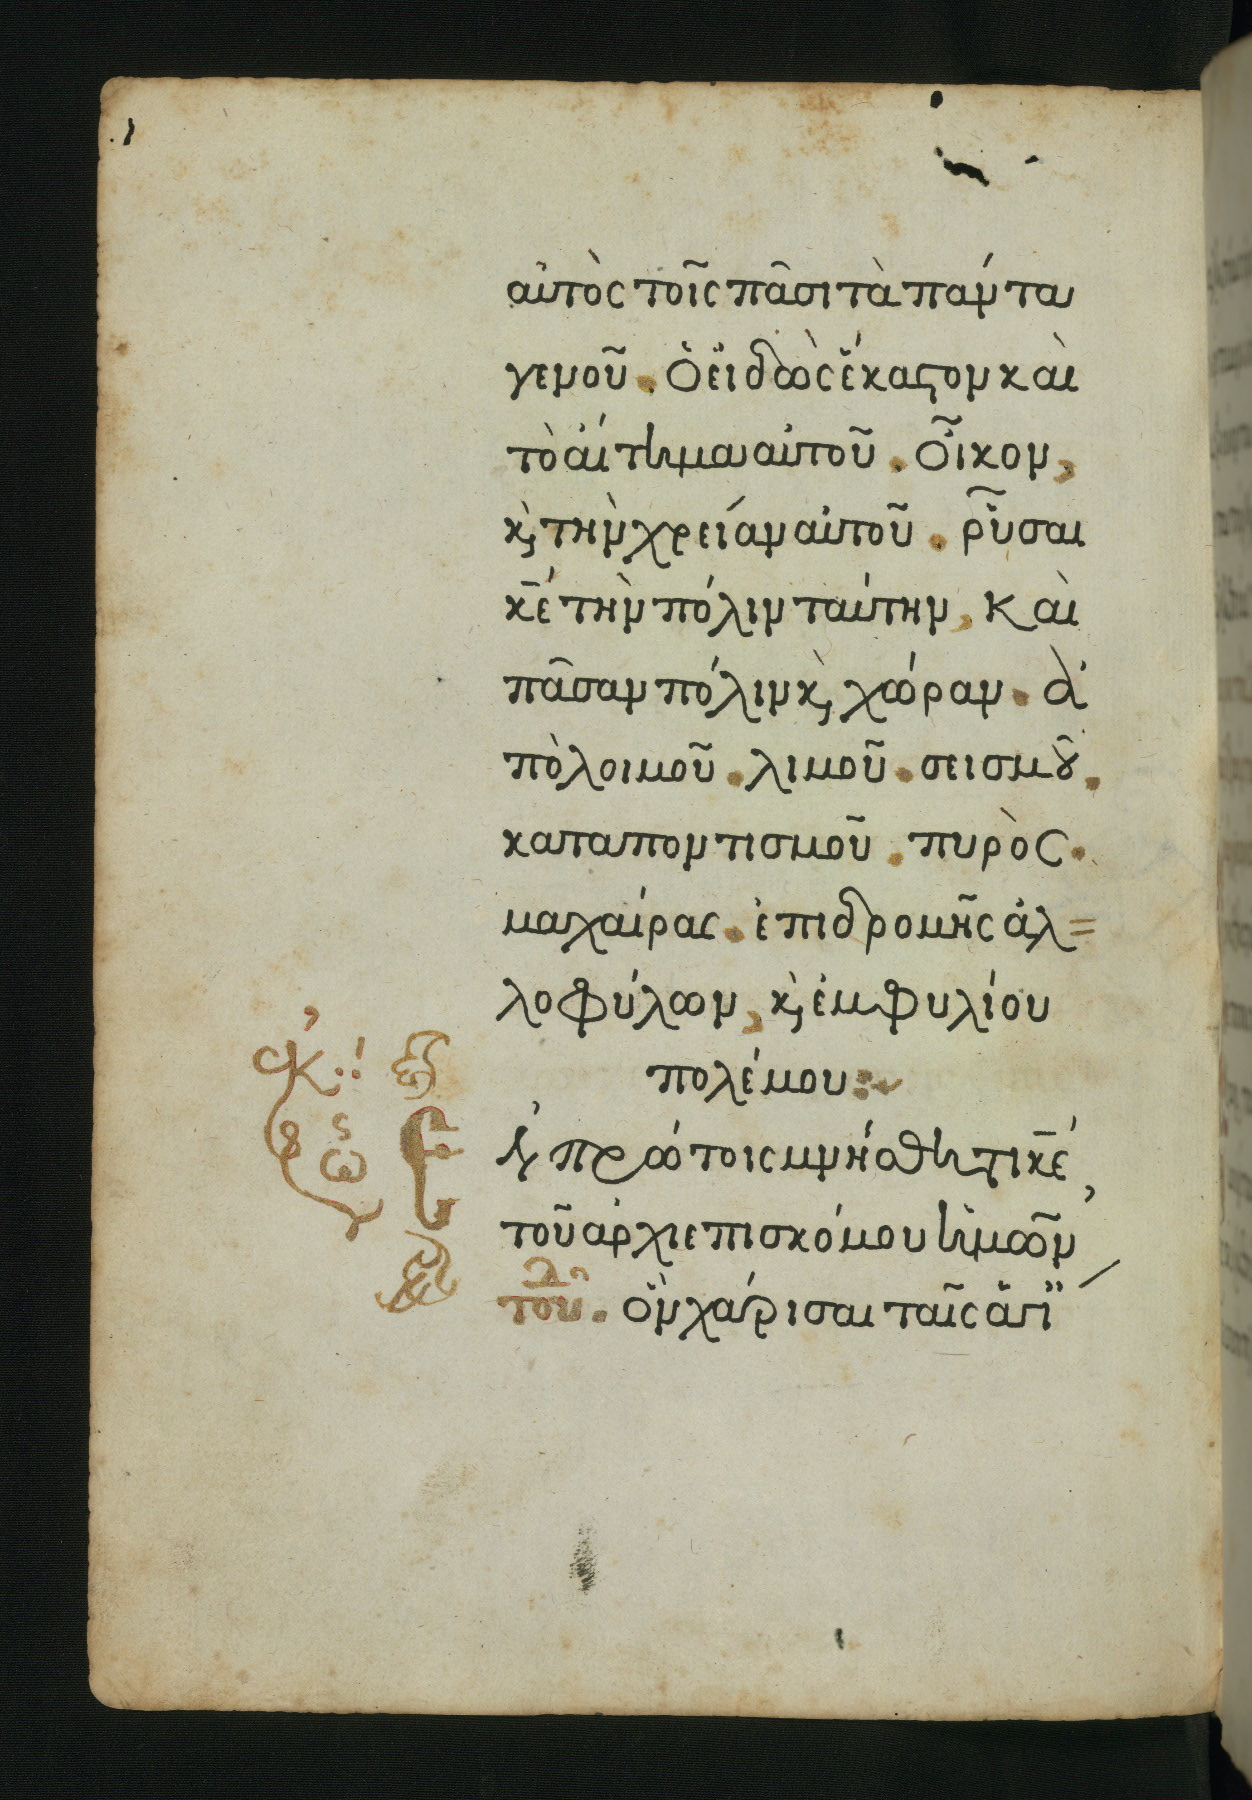 αὐτὸς τοῖς πᾶσι τὰ πάντα
γενοῦ. ὁ εἰδὼς ἕκαστον καὶ
τὸ αἴτημα αὐτοῦ. οἶκον,
κ̀ τὴν χρείαν αὐτοῦ. ῥῦσαι
κ̅ε τὴν πόλιν ταύτην, καὶ
πᾶσαν πόλιν κ̀ χώραν. ἀ
πὸ λοιμοῦ. λιμοῦ. σεισμοῦ.
καταποντισμοῦ. πυρὸς.
μαχαίρας. ἐπιδρομῆς ἀλ=
λοφύλων, κ̀ ἐμφυλίου
πολέμου:~
Ἐν πρώτοις μνήσθητι κ̅ε
τοῦ ἀρχιεπισκόπου ἡμῶν,
τοῦ δ. ὃν χάρισαι ταῖς ἁγί